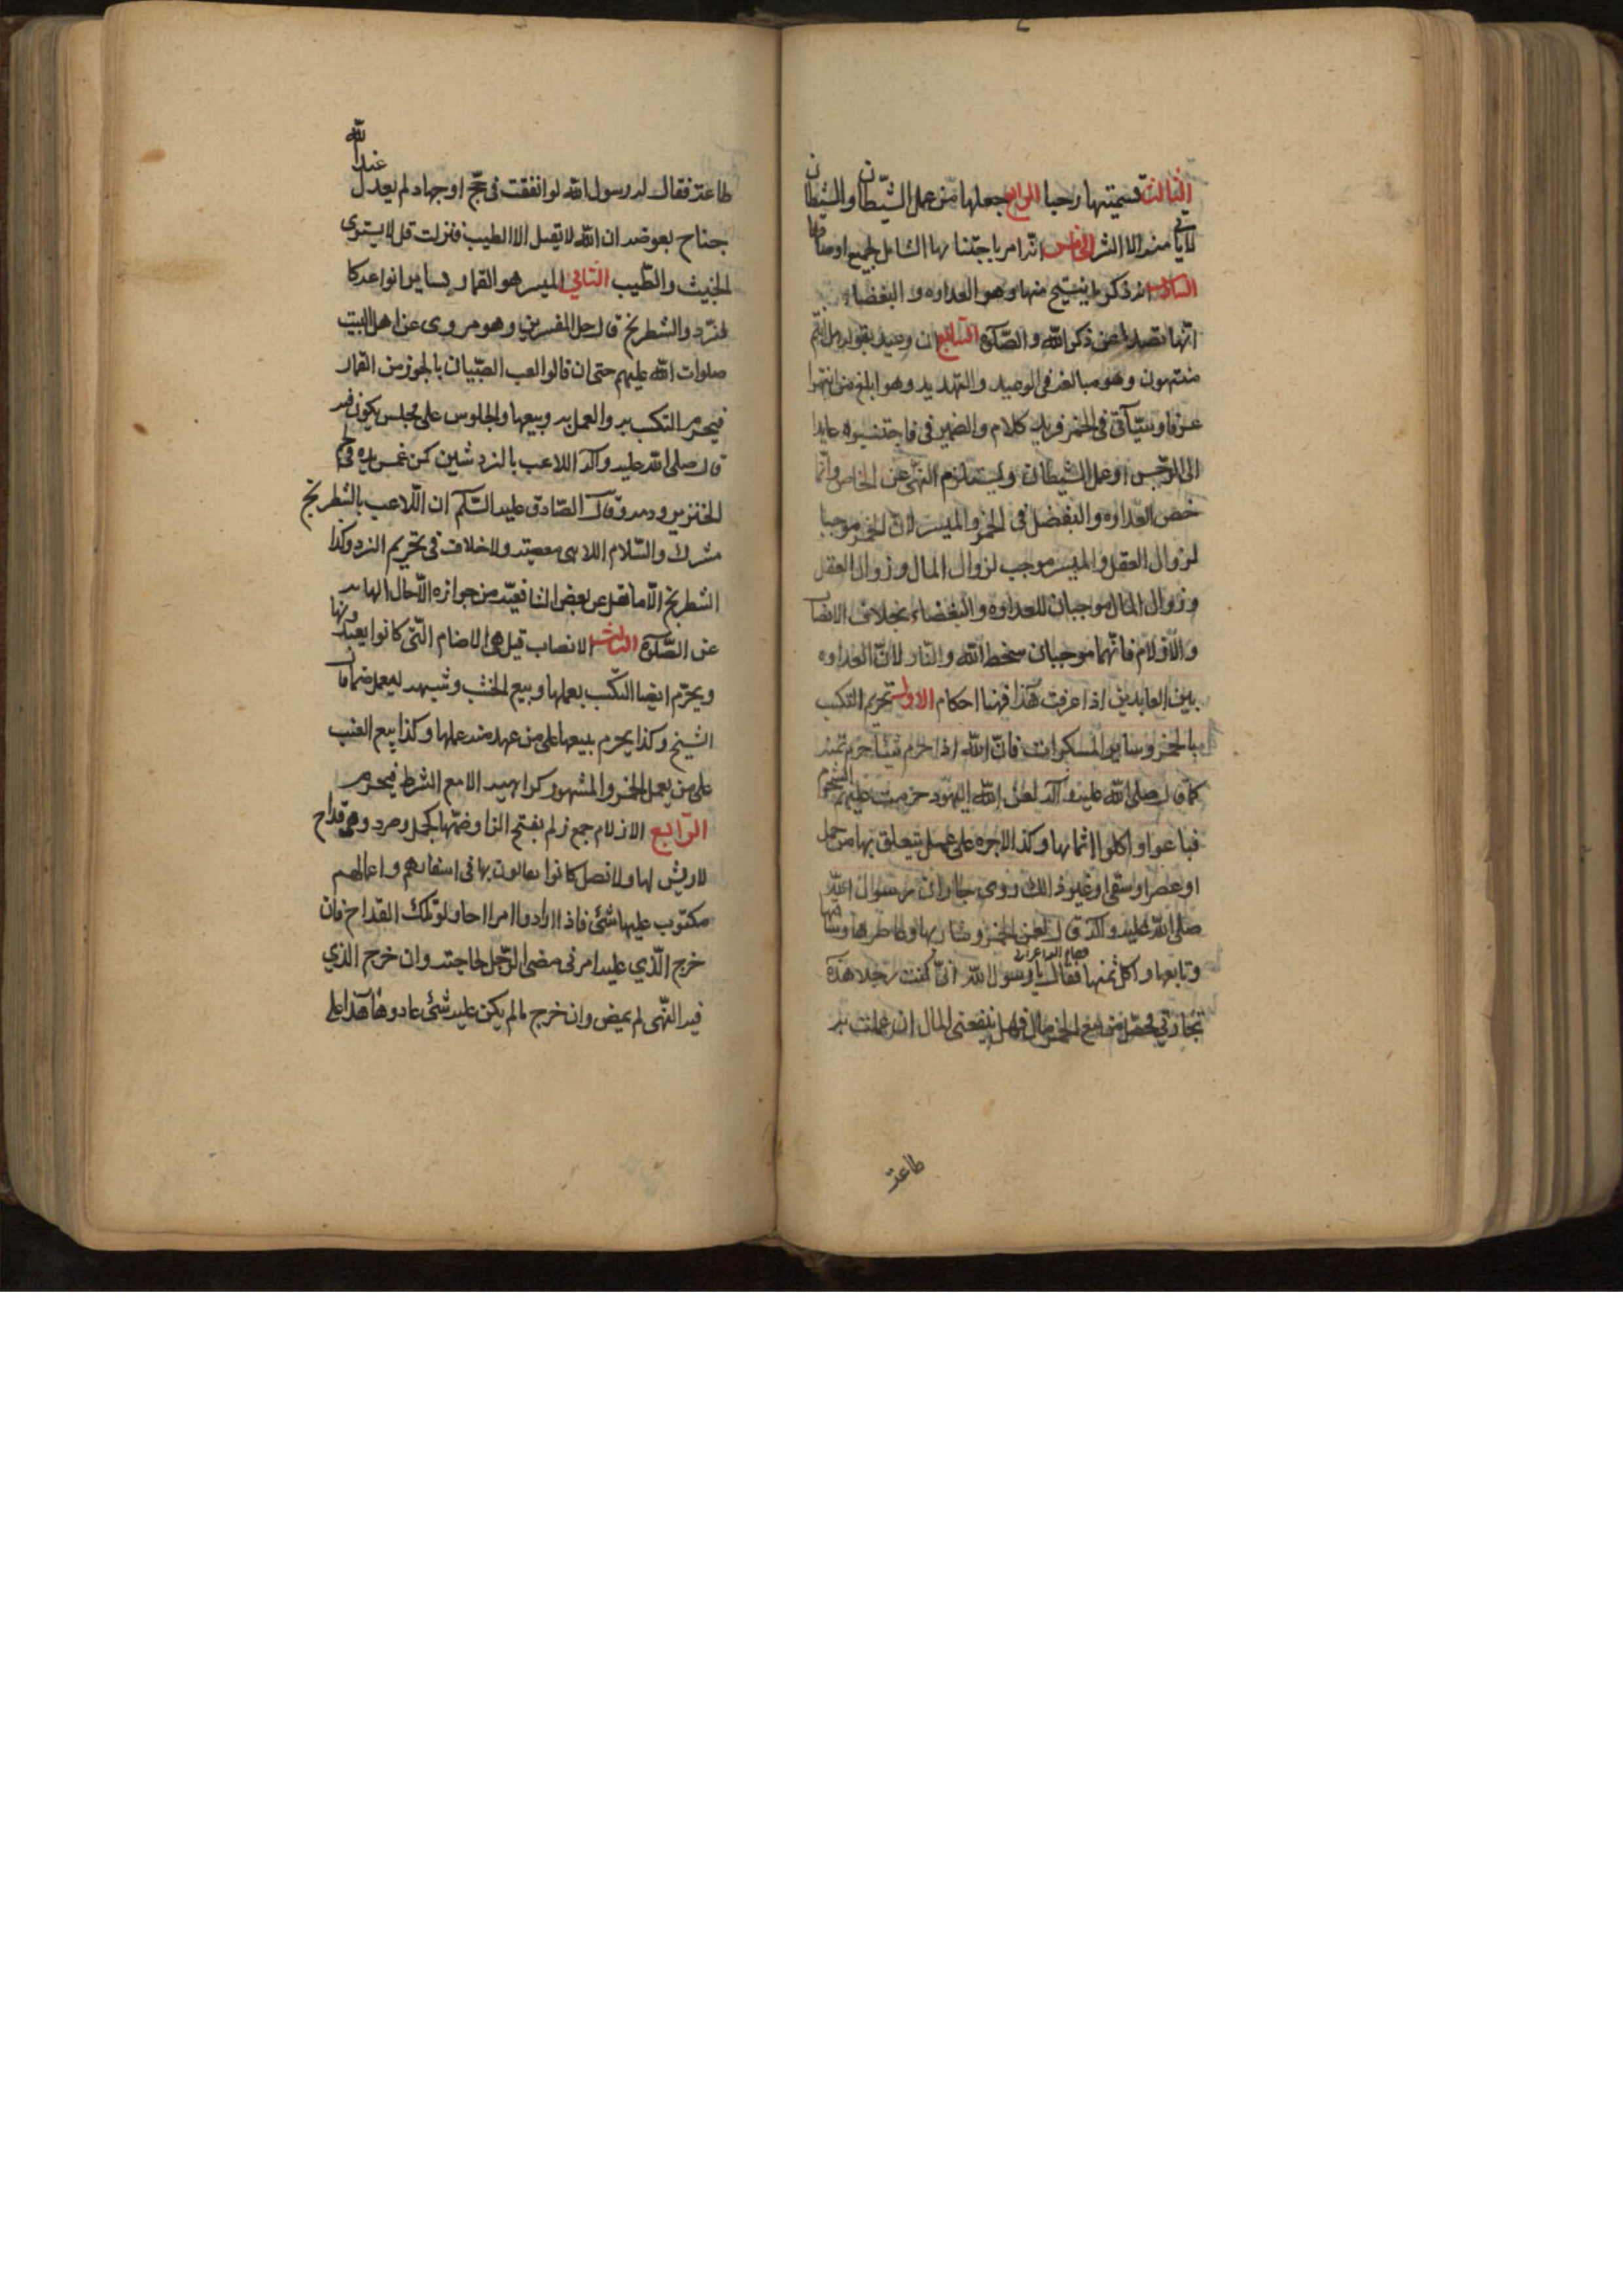 الثالث تسميتها رجسا الرابع جعلها من عمل الشيطان والشيطان
لا يأتي منه الا الشر الخامس انه امر باجتنابها الشامل لجميع اوصافها
السادس انه ذكر ما ينتج منها وهو العداوه و البغضاء
انها تصد عن ذكر الله و الصلوة السابع ان وعيده بقوله هل انتم
منتهون وهو مبالغة فى الوعيد و التهديد وهو ابلغ من انتهوا
عرفا وسيأتى فى الخمر مزيد كلام والضمير فى فاجتنبوه عايدا
الى الرجس او عمل الشيطان ويستلزم النهى عن الخاص وانما
خص العداوه و البغضا فى الخمر والميسر لان الخمر موجبا
لزوال العقل والميسر موجب لزوال المال وزوال العقل
وزوال المال موجبان للعداوه والبغضاء بخلاف الانصاب
والازلام فانهما موجبان سخط الله والنار لان العداوه
بين العابدين اذا عرفت هذا فهنا احكام الاول تحريم التكسب
بالخمر وساير المسكرات فان الله اذا حرم شيئا حرم ثمنه
كما قال صلى الله عليه وآله لعن الله اليهود حرمت عليهم الشحوم
فباعوا واكلوا اثمانها وكذا الاجره على عمل يتعلق بها من حمل
او عصر او سقى او غير ذالك روى جابر ان رسول الله
صلى الله عليه وآله قال لعن الخمر وشاربها وعاصرها وساقيها
وبايعها واكل ثمنها فقام اليه اعرابى فقال يا رسول الله انى كنت رجلا هذه
تجارتي فحصل من بيع الخمر مال فهل ينفعنى المال ان عملت به
طاعة
طاعة فقال له رسول الله لو انفقت فى حج او جهاد لم يعدل عند الله
جناح بعوضه ان الله لا يقبل الا الطيب فنزلت قل لا يستوى
الخبيث والطيب الثاني الميسر هو القمار بساير انواعه كا
لنرد والشطرنج قال جل المفسرين وهو مروى عن اهل البيت
صلوات الله عليهم حتى ان قالوا لعب الصبيان بالجوز من القمار
فيحرم التكسب به والعمل به وبيعها والجلوس على مجلس يكون فيه
قال صلى الله عليه وآله اللاعب بالنردشين كمن غمس يده في لحم
الخنزير ودمه وقال الصادق عليه السلام ان اللاعب بالشطرنج
مشرك والسلام اللاهى معصية ولا خلاف فى تحريم النرد وكذا
الشطرنج الا ما نقل عن بعض الشافعية من جوازه الا حال الهايه
عن الصلوة الثالث الانصاب قيل هى الاصنام التى كانوا يعبدونها
ويحرم ايضا التكسب بعملها وبيع الخشب وشبهه ليعمل صنما قال
الشيخ وكذا يحرم بيعها على من عهد منه عملها وكذا بيع العنب
على من يعمل الخمر والمشهور كراهيه الا مع الشرط فيحرم
الرابع الازلام جمع زلم بفتح الزا وضمها كجل وصرد وهى قداح
لا ريش لها ولا نصل كانوا يفالون بها فى اسفارهم واعمالهم
مكتوب عليها شئ فاذا ارادوا امرا اجالو تلك القداح فان
خرج الذي عليه امرنى مضى الرجل لحاجته وان خرج الذي
فيه النهى لم يمض وان خرج ما لم يكن عليه شئ عادوها هذا على